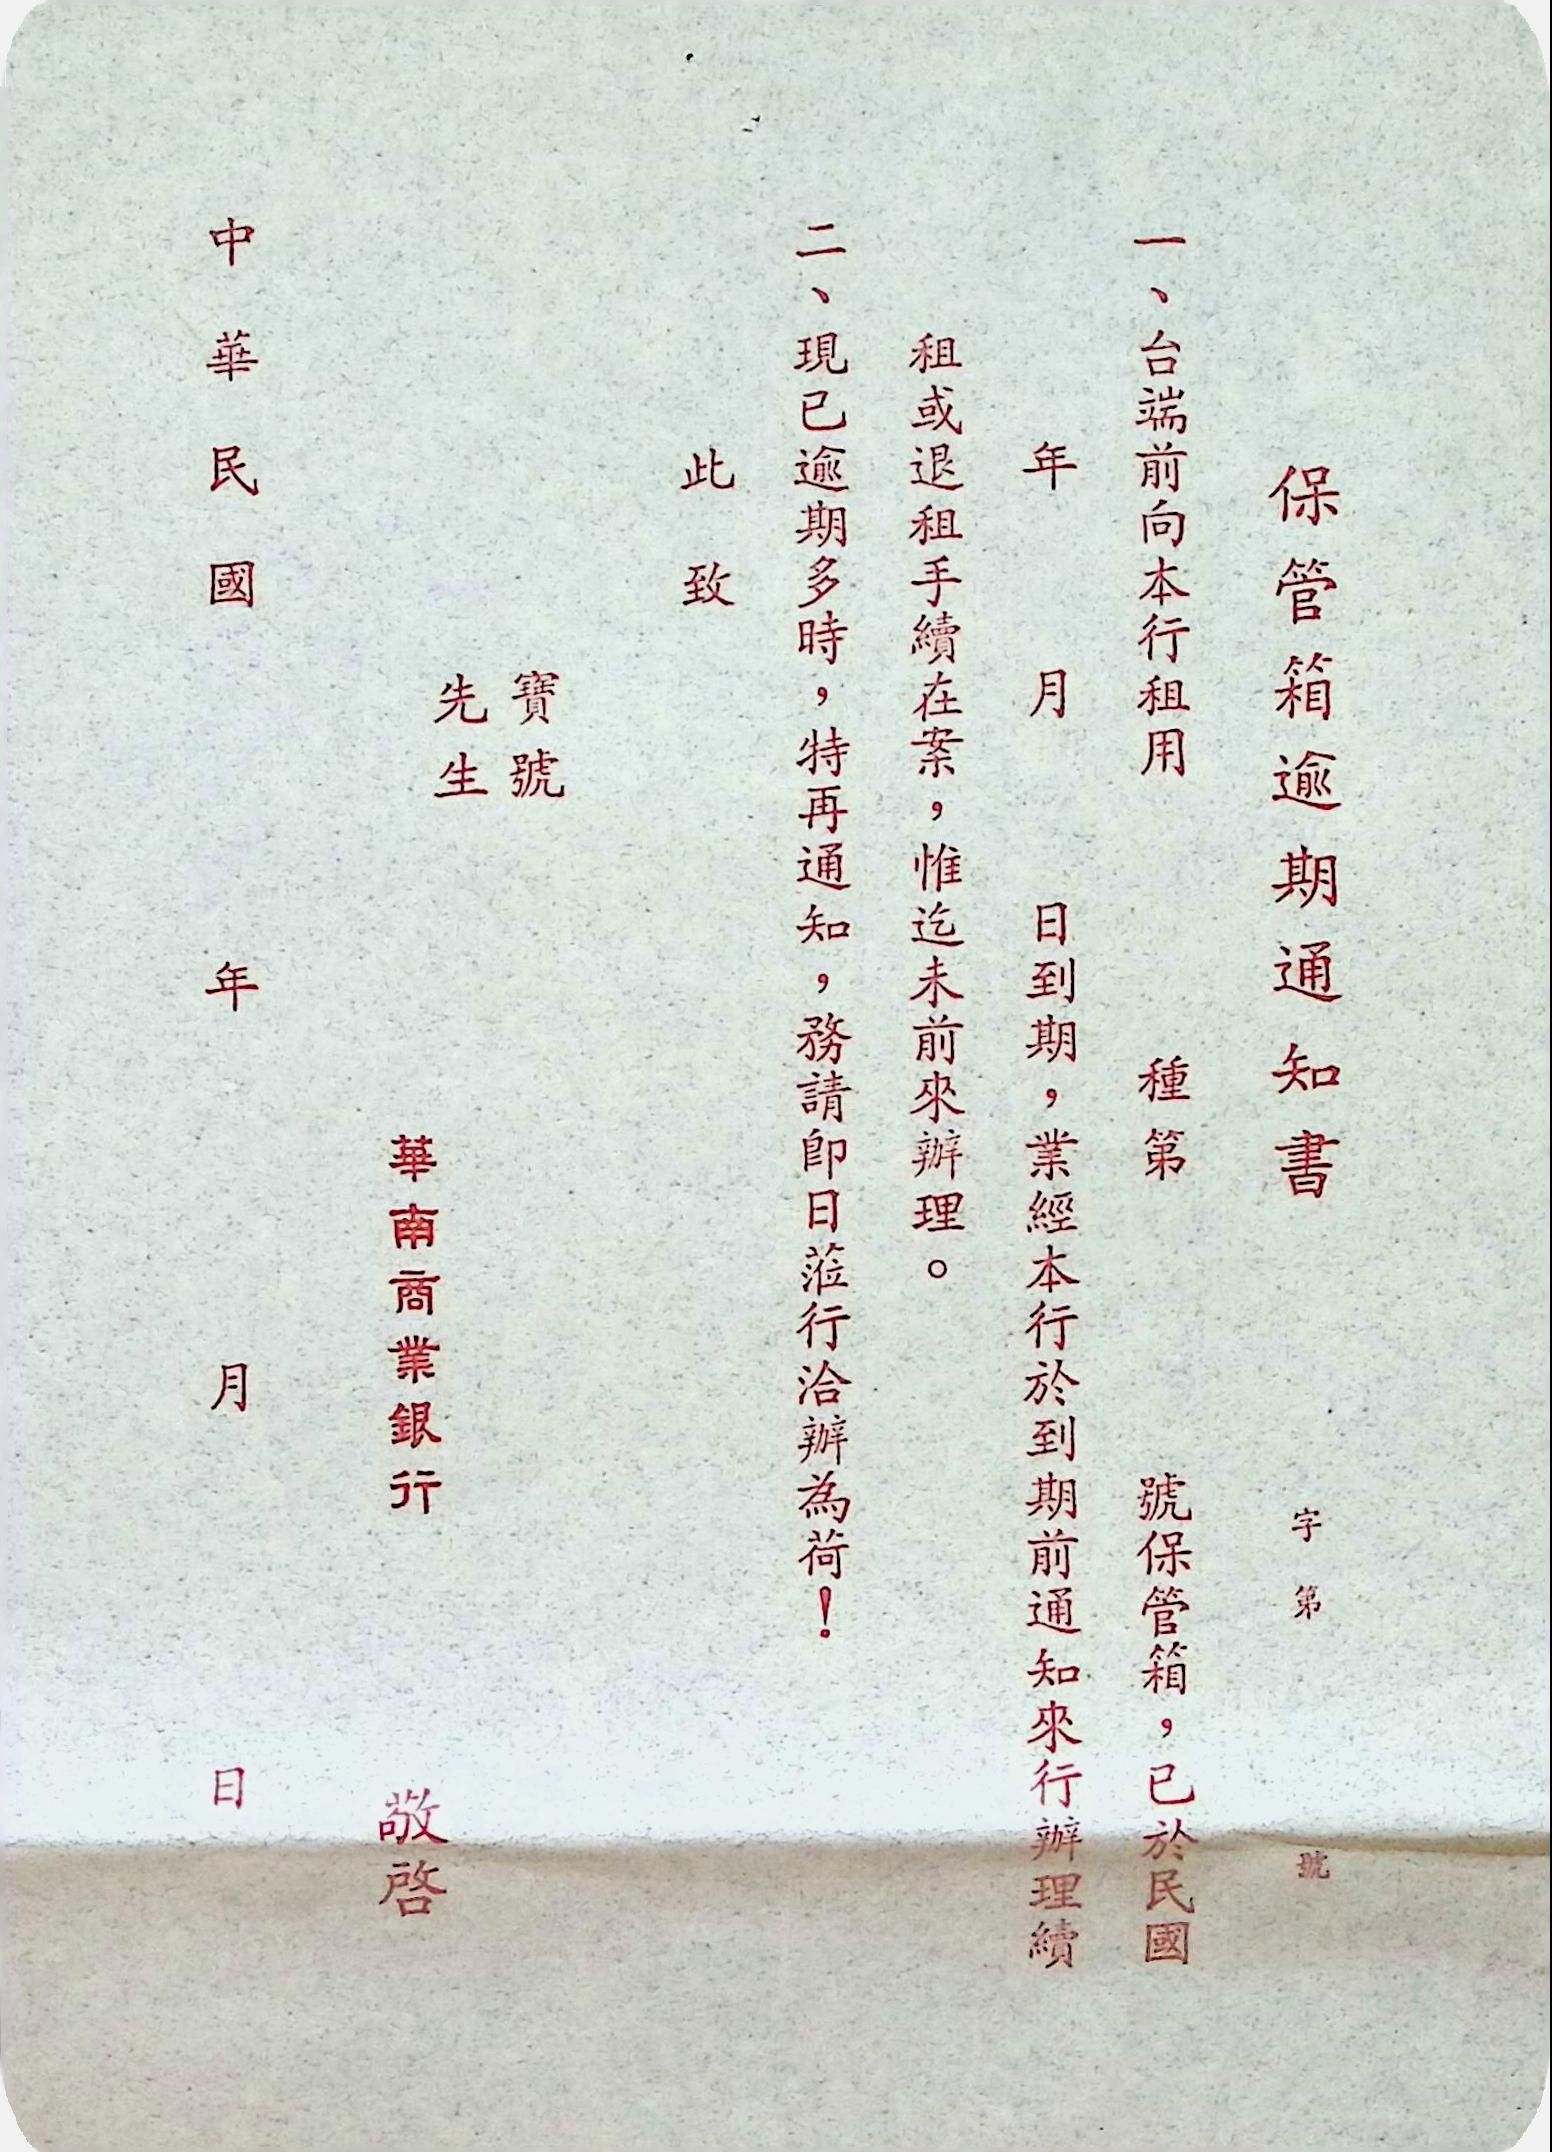 保管箱逾期通知書 字第 號
一、台端前向本行租用 種第 號保管箱，已於民國
年 月 日到期，業經本行於到期前通知來行辦理續
租或退租手續在案，惟迄未前來辦理。
二、現已逾期多時，特再通知，務請即日蒞行洽辦為荷！
此致
寶號
先生
華南商業銀行 敬啓
中華民國 年 月 日